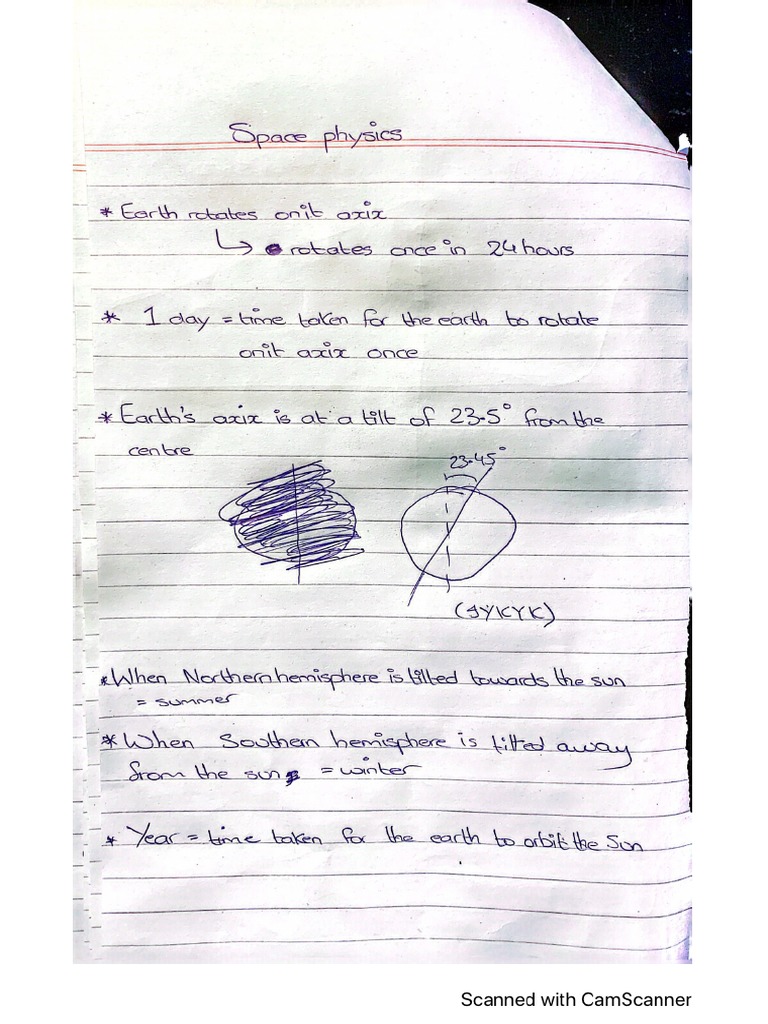 Space physics
* Earth rotates onit axix
↳ rotates once in 24 hours
* 1 day = time taken for the earth to rotate
onit axix once
* Earth's axix is at a tilt of 23.5° from the
centre
23.45°
(IYKYK)
* When Northern hemisphere is tilted towards the sun
= summer
* When Southern hemisphere is tilted away
from the sun = winter
* Year = time taken for the earth to orbit the Sun
Scanned with CamScanner